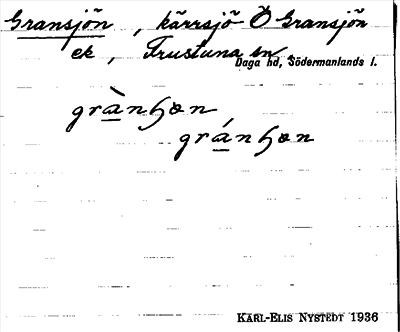 Gransjön, kärrsjö Ö Gransjön
ek, Frustuna sn
Daga hd, Södermanlands l.
grànꞕən
gránꞕən
KARL-ELIS NYSTEDT 1936